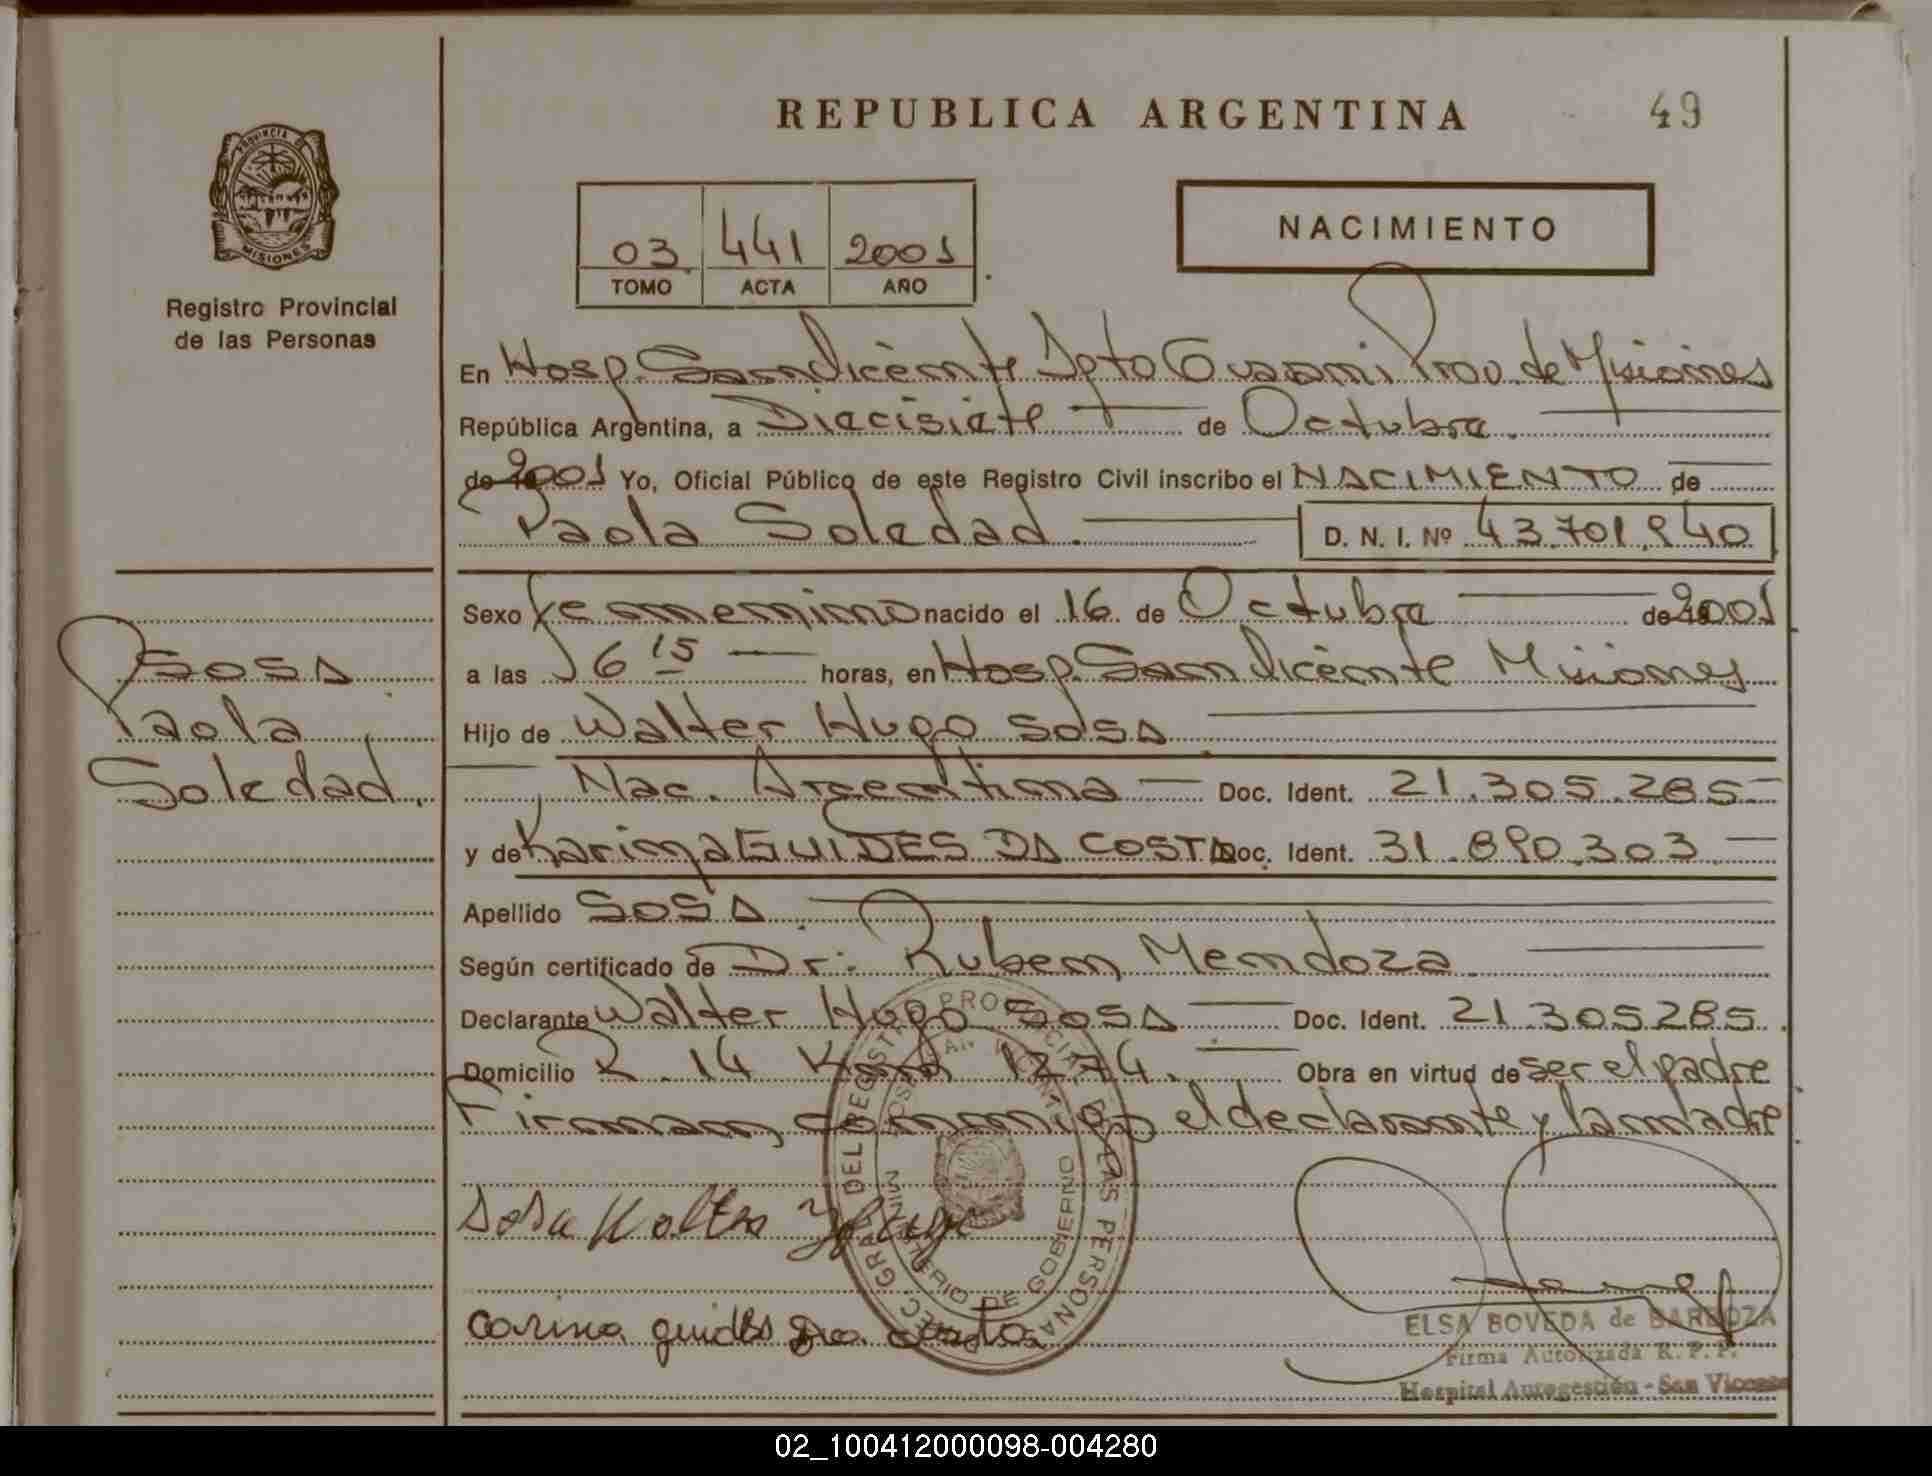 REPUBLICA ARGENTINA 49
PROVINCIA DE MISIONES
Registro Provincial
de las Personas
03 441 2001
TOMO ACTA AÑO
NACIMIENTO
En Hosp. San Vicente Dpto Guaraní Prov. de Misiones
República Argentina, a Diecisiete de Octubre
de 2001 Yo, Oficial Público de este Registro Civil inscribo el NACIMIENTO de
Paola Soledad. D. N. I. Nº 43.701.840
Sexo femenino nacido el 16 de Octubre de 2001
a las 16 15 horas, en Hosp. San Vicente Misiones
Hijo de Walter Hugo SOSA
Nac. Argentina Doc. Ident. 21.305.285
y de Karina GUIDES DA COSTA Doc. Ident. 31.890.303
Apellido SOSA
Según certificado de Dr: Ruben Mendoza
Declarante Walter Hugo SOSA Doc. Ident. 21.305285.
Domicilio R. 14 Km 1274. Obra en virtud de ser el padre
Firman conmigo el declarante y la madre
SOSA
Paola
Soledad.
Sosa Walter
Carina guides Da Costa
DEL REGISTRO PROVINCIAL DE LAS PERSONAS
MINISTERIO DE GOBIERNO
ELSA BOVEDA de BARBOZA
Firma Autorizada R. P. P.
Hospital Autogestión - San Vicente
02_100412000098-004280